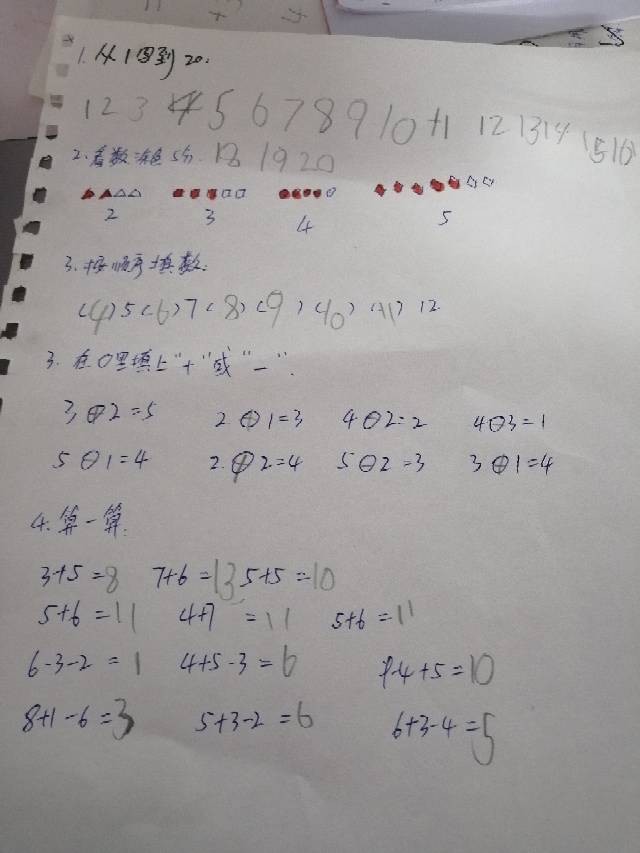 1. 从1写到20.
1 2 3 4 5 6 7 8 9 10 11 12 13 14 15 16
2. 看数涂色 18 19 20
2 3 4 5
3. 按顺序填数:
(4) 5 (6) 7 (8) (9) (10) (11) 12
3. 在○里填上"+"或"-".
3⊕2=5 2⊕1=3 4⊖2=2 4⊖3=1
5⊖1=4 2⊕2=4 5⊖2=3 3⊕1=4
4. 算一算.
3+5=8 7+6=13 5+5=10
5+6=11 4+7=11 5+6=11
6-3-2=1 4+5-3=6 9-4+5=10
8+1-6=3 5+3-2=6 6+3-4=5